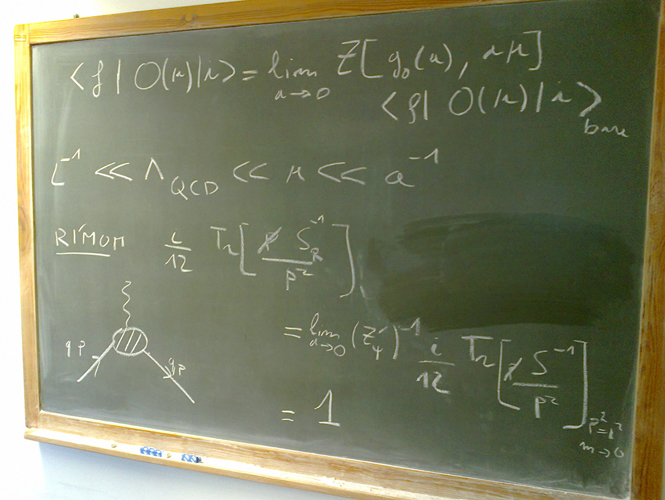 ⟨f | O(μ) | i⟩ = lim_{a→0} Z[g₀(a), aμ]
⟨f | O(μ) | i⟩_{bare}
L⁻¹ ≪ Λ_QCD ≪ μ ≪ a⁻¹
RI'MOM i/12 Tr[p̸ S_R⁻¹ / p²]
= lim_{a→0} (Z'_ψ)⁻¹ i/12 Tr[p̸ S⁻¹ / p²]_{p²=μ², m→0}
q p q p
= 1